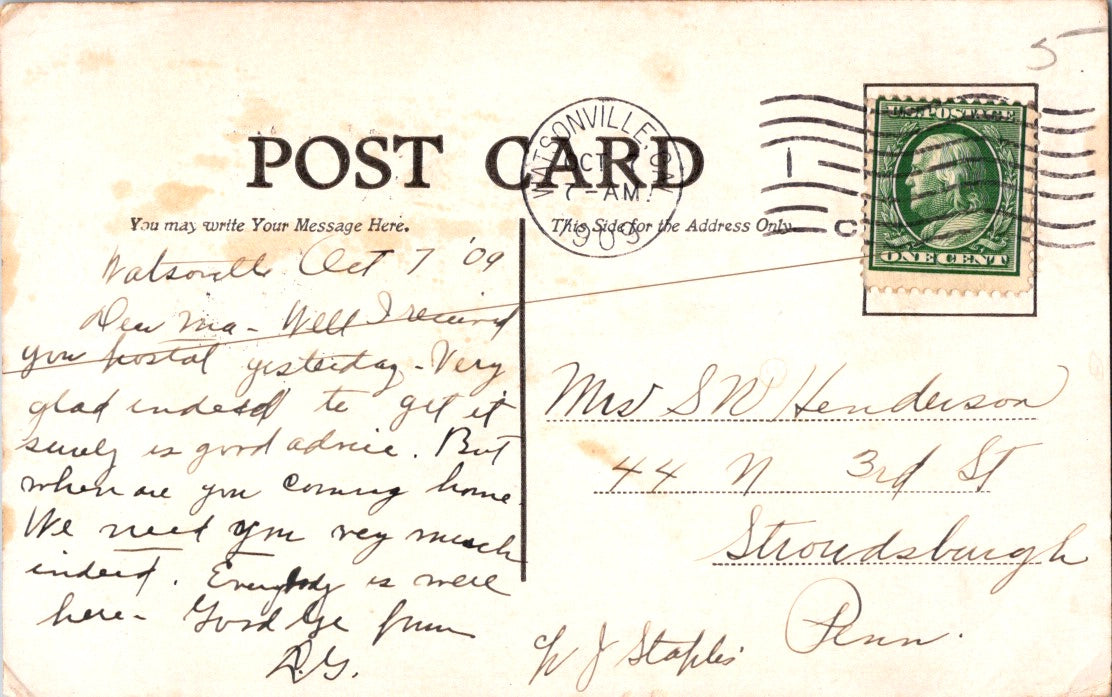 5
POST CARD
WATSONVILLE, CAL.
OCT 7
7-AM.
1909
U.S. POSTAGE
ONE CENT
You may write Your Message Here.
This Side for the Address Only.
Watsonville Oct 7 '09
Dear Ma- Well I received
your postal yesterday - Very
glad indeed to get it
surely is good advice. But
when are you coming home.
We need you very much
indeed. Everybody is well
here- Good bye from
D.G.
Mrs S W Henderson
44 N 3rd St
Stroudsburgh
Penn.
c/o J Staples